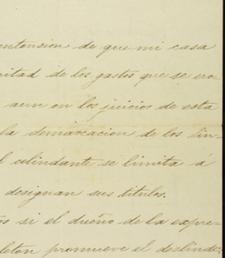 ntension de que mi casa
mitad de los gastos que se
aun en los juicios de esta
la demarcacion de los lin-
l colindante se limita á
designan sus títulos.
os si el dueño de la expre-
promueve el deslinde